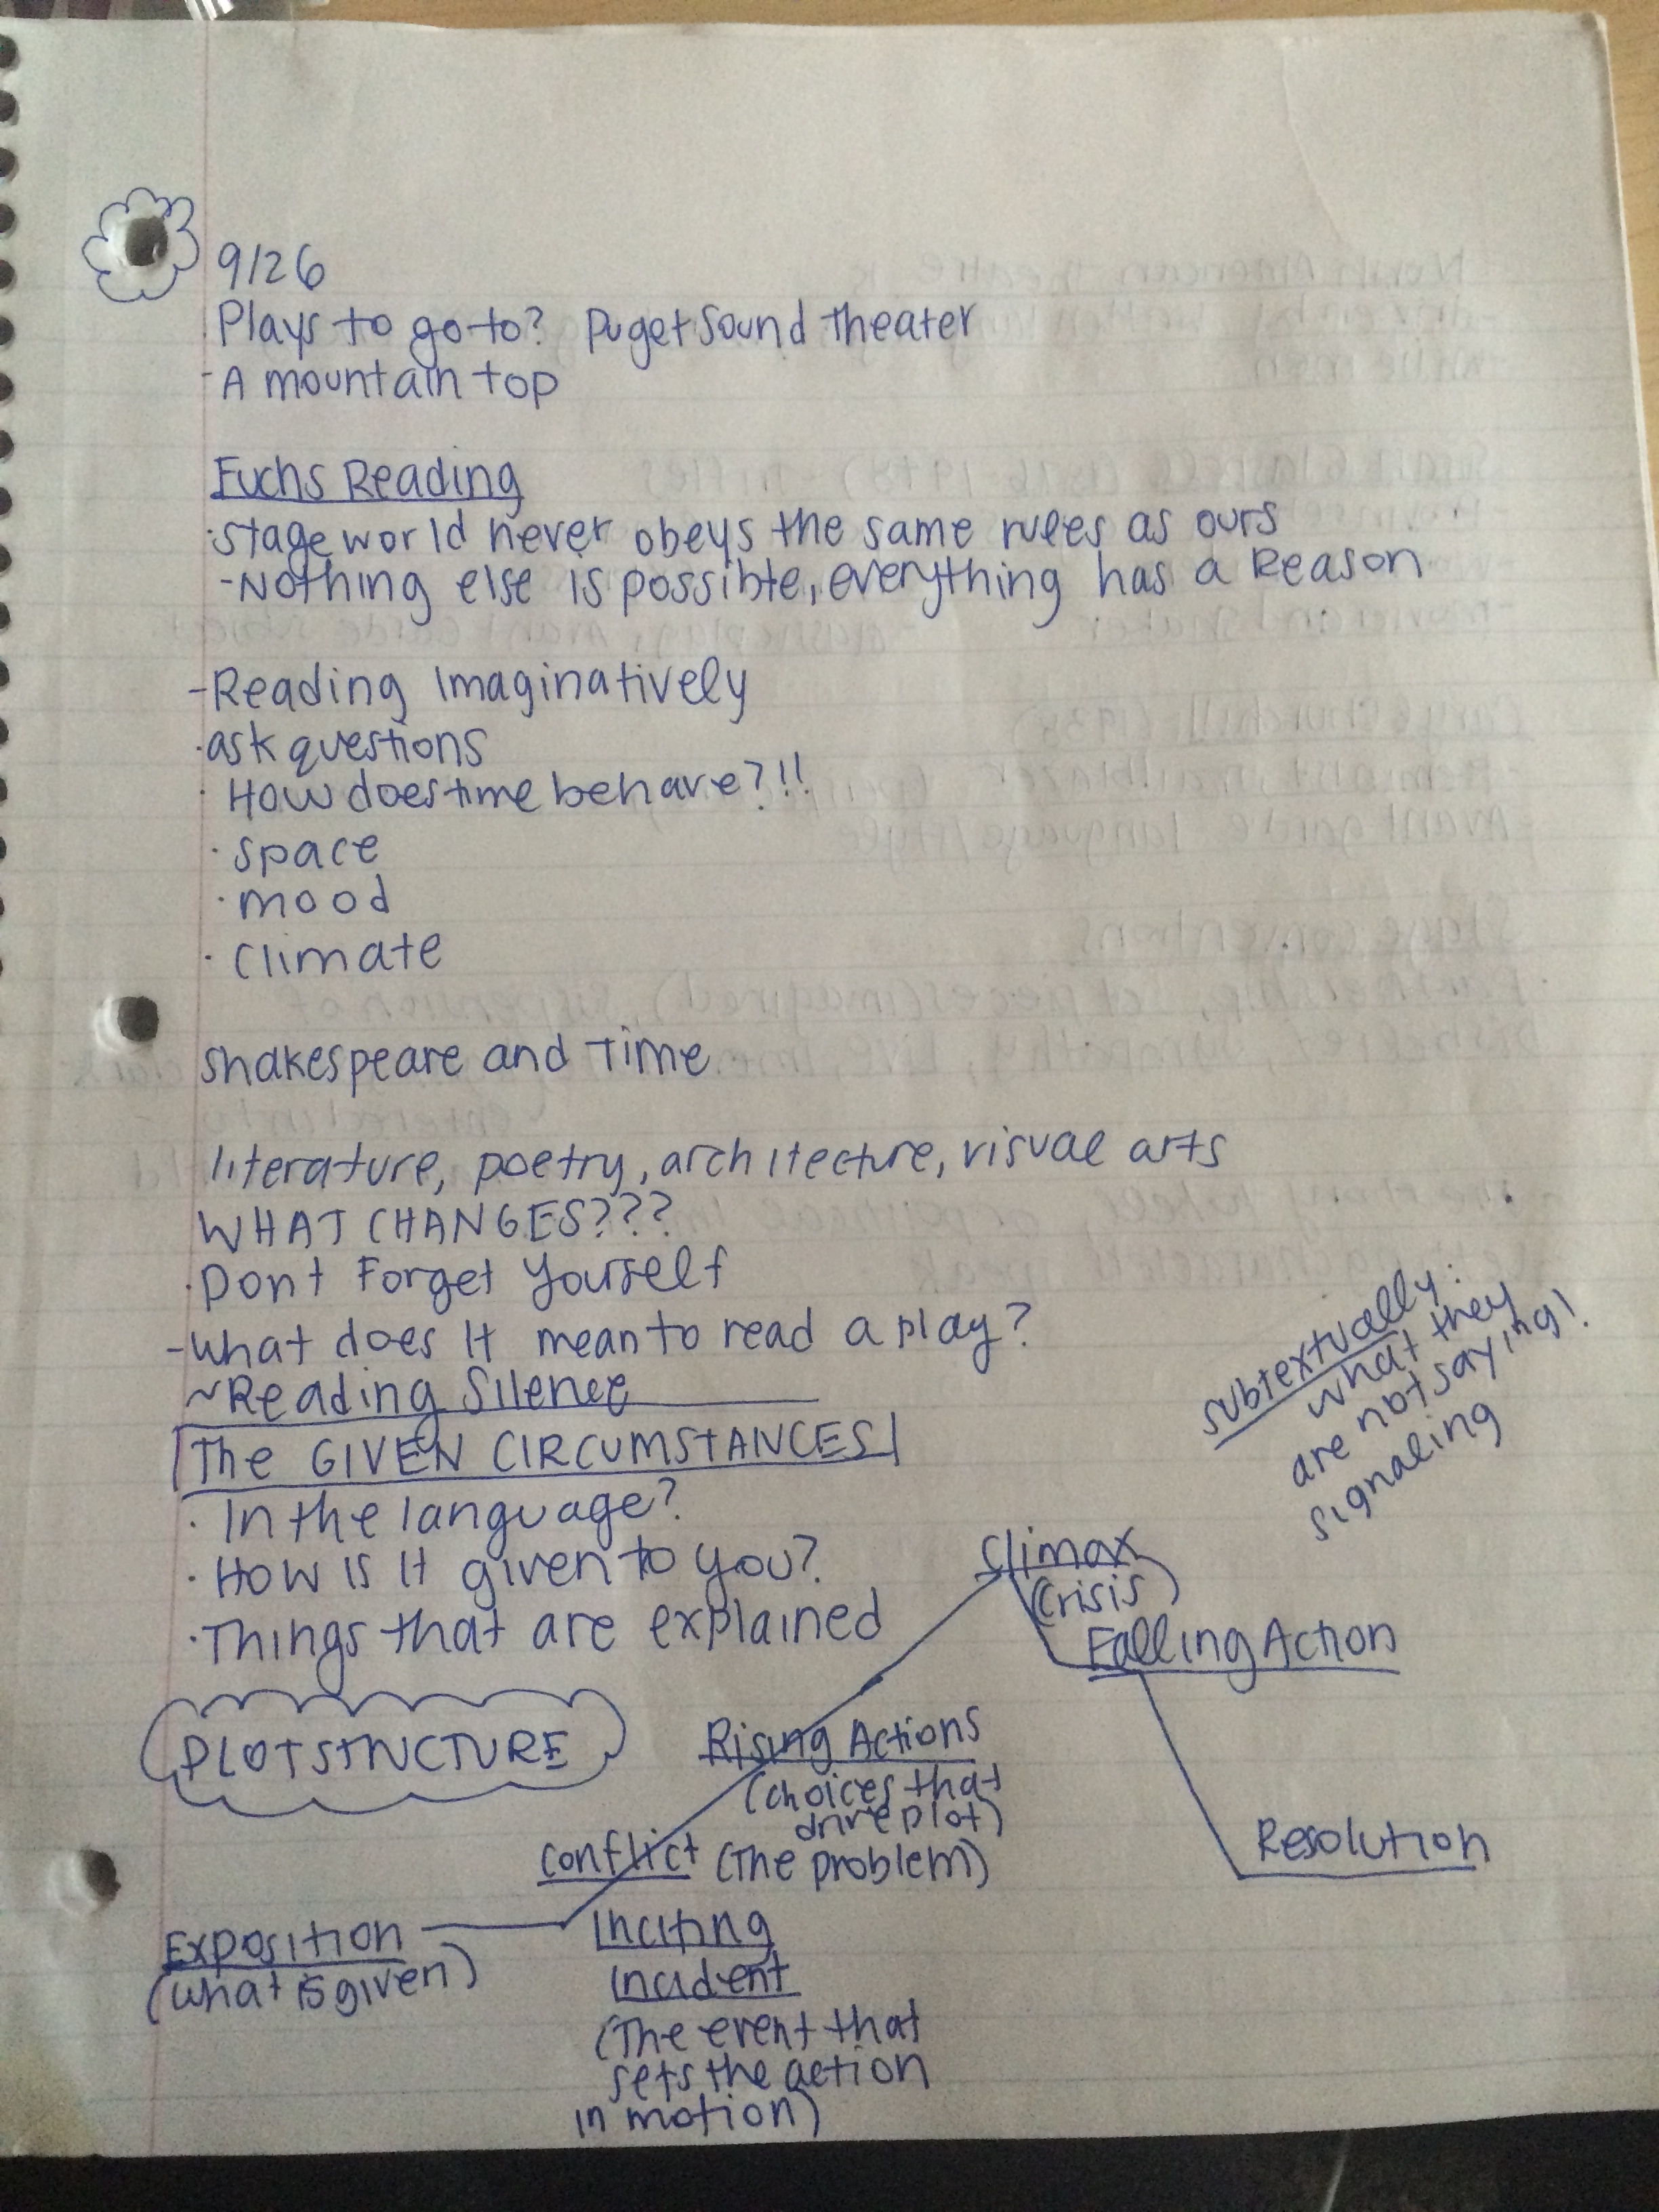 9/26
Plays to go to? Puget Sound Theater
-A mountain top
Fuchs Reading
·stage world never obeys the same rules as ours
-Nothing else is possible, everything has a Reason
-Reading Imaginatively
·ask questions
· How does time behave?!!
· space
· mood
· climate
Shakespeare and Time
literature, poetry, architecture, visual arts
WHAT CHANGES???
·Dont Forget Yourself
-What does it mean to read a play?
~Reading Silence
The GIVEN CIRCUMSTANCES
· In the language?
· How is it given to you?
·Things that are explained
subtextually:
what they
are not saying!
signaling
Climax
(crisis)
Falling Action
PLOT STRUCTURE
Rising Actions
(choices that
drive plot)
Conflict (The problem)
Resolution
Exposition
(what is given)
Inciting
Incident
(The event that
sets the action
in motion)